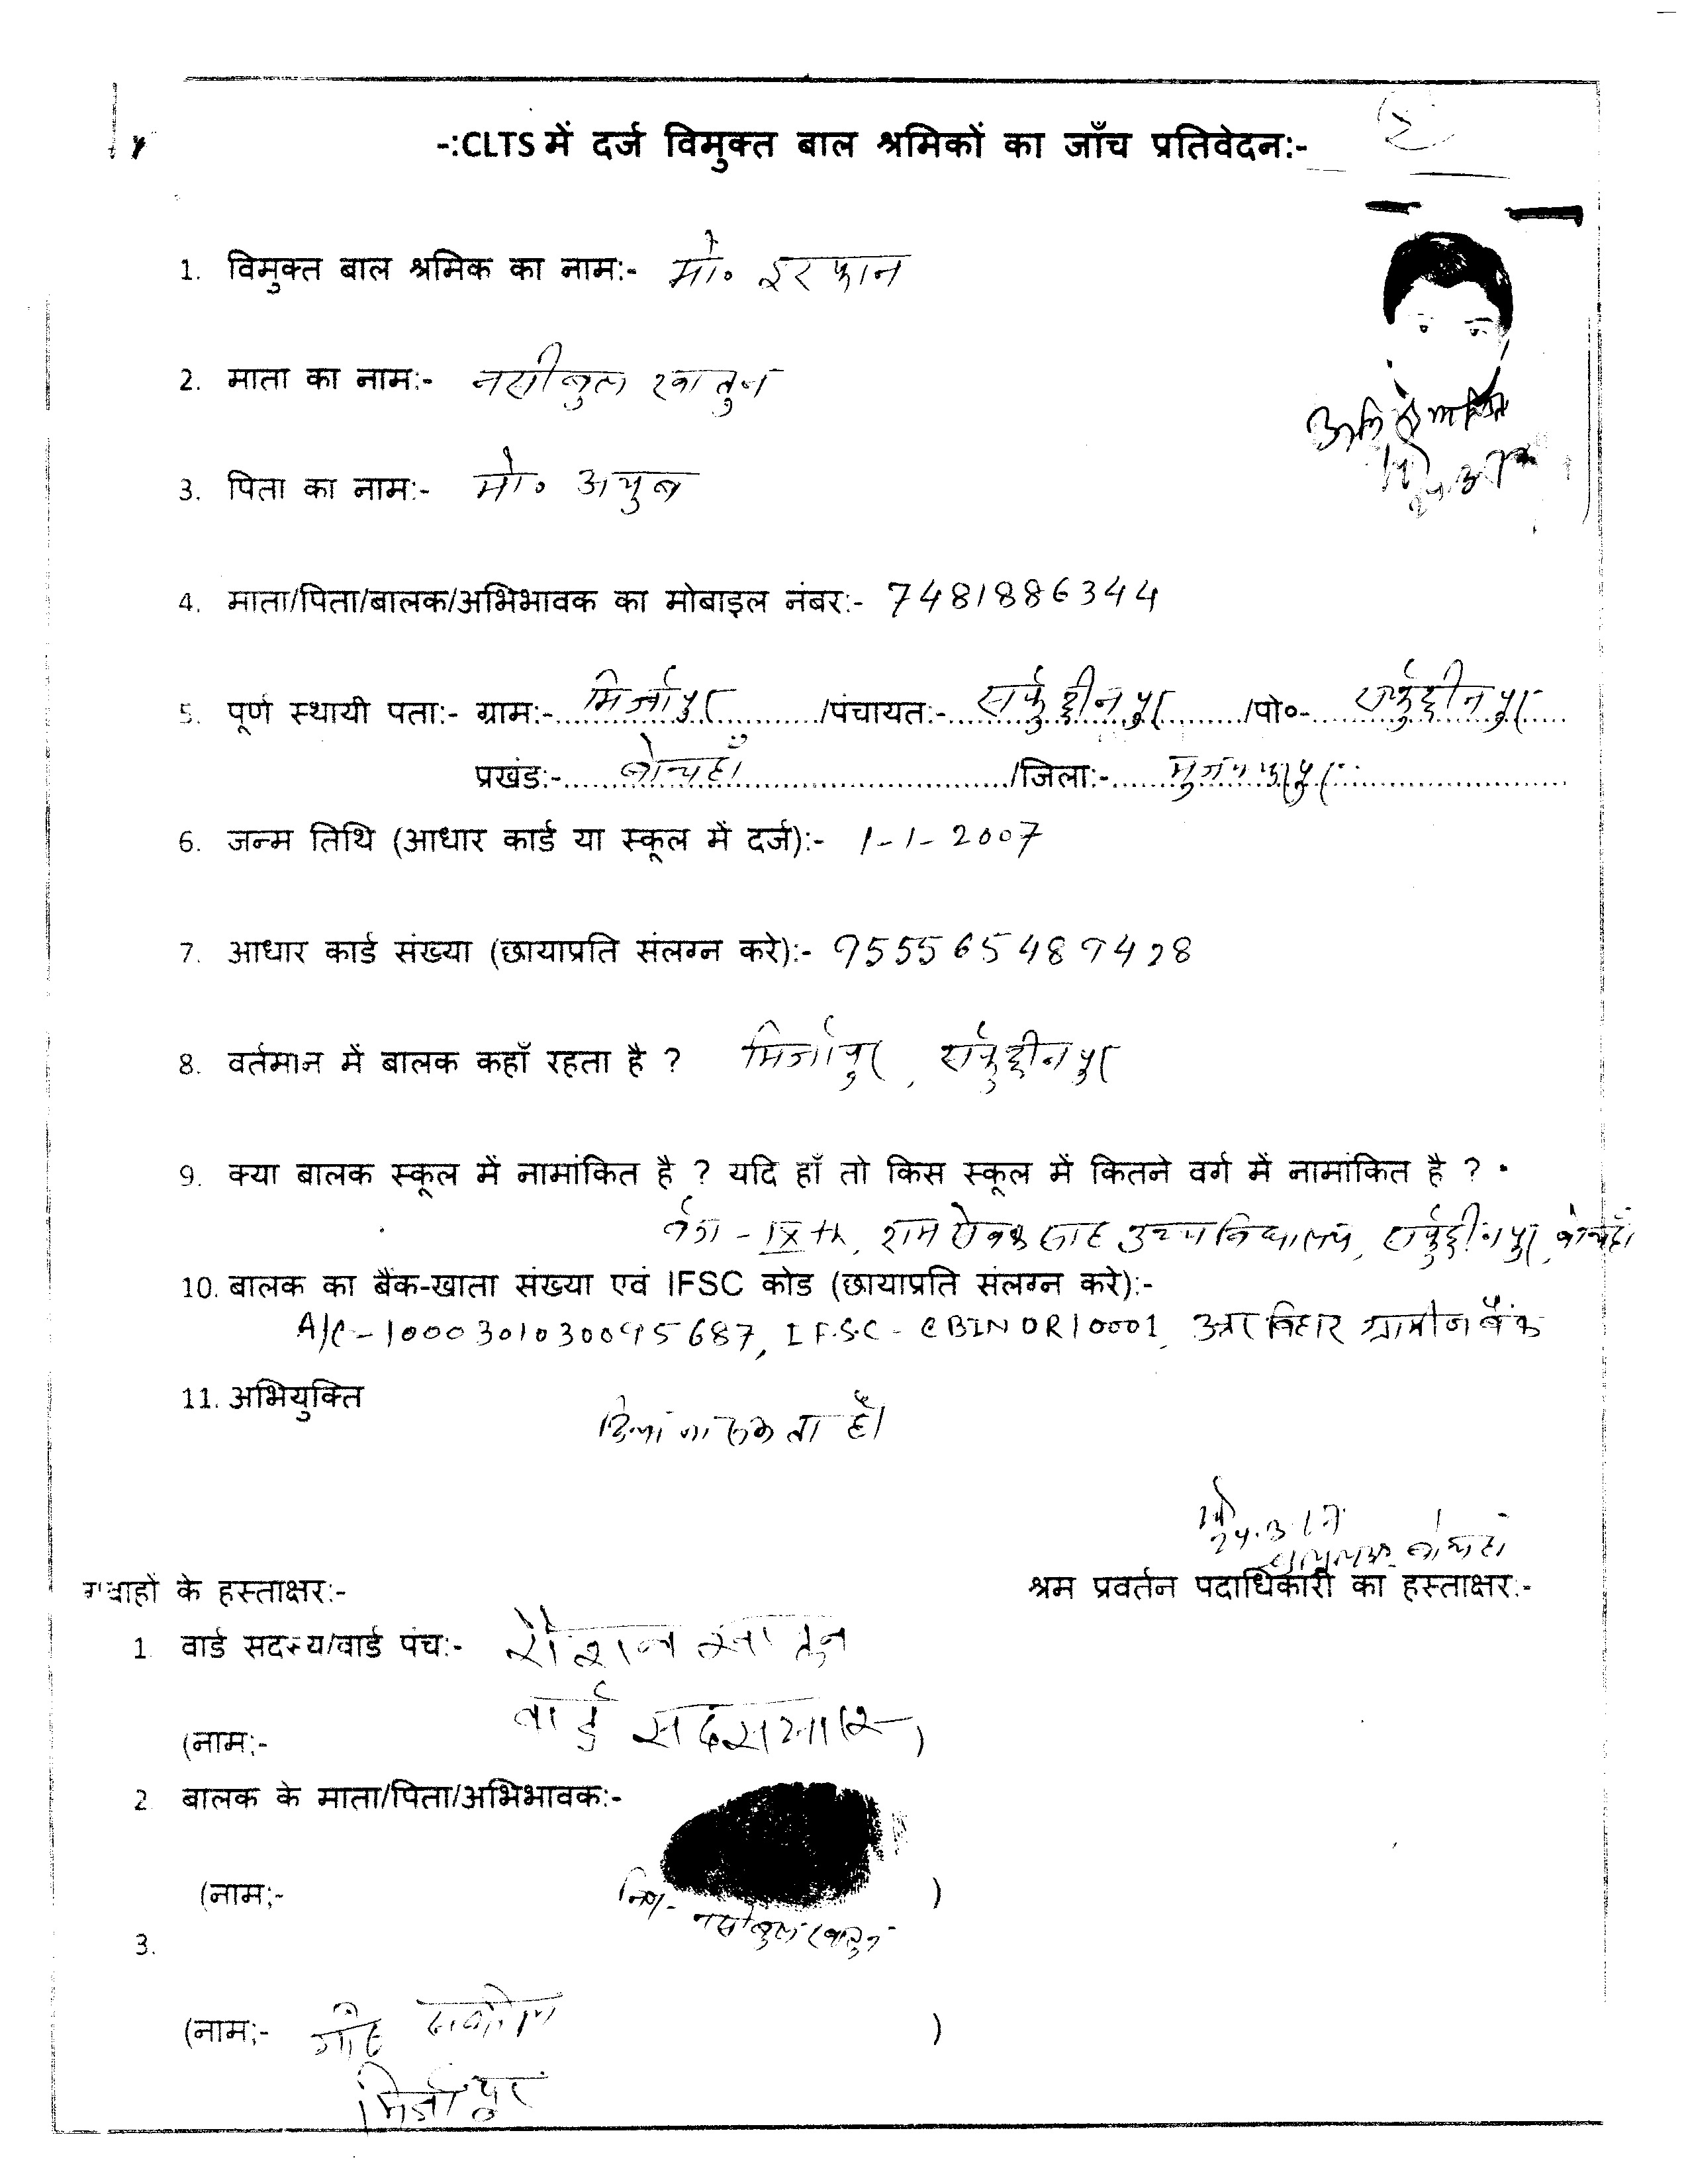 -:CLTS में दर्ज विमुक्त बाल श्रमिकों का जाँच प्रतिवेदन:-
1. विमुक्त बाल श्रमिक का नाम:- मो० इरफान
2. माता का नाम:- नसीबुल खातुन
3. पिता का नाम:- मो० अयुब
4. माता/पिता/बालक/अभिभावक का मोबाइल नंबर:- 7481886344
5. पूर्ण स्थायी पता:- ग्राम:- मिर्जापुर /पंचायत:- सर्फुद्दीनपुर /पो०- सर्फुद्दीनपुर
प्रखंड:- बोचहाँ /जिला:- मुजफ्फरपुर
6. जन्म तिथि (आधार कार्ड या स्कूल में दर्ज):- 1-1-2007
7. आधार कार्ड संख्या (छायाप्रति संलग्न करे):- 955565489428
8. वर्तमान में बालक कहाँ रहता है ? मिर्जापुर, सर्फुद्दीनपुर
9. क्या बालक स्कूल में नामांकित है ? यदि हाँ तो किस स्कूल में कितने वर्ग में नामांकित है ?
वर्ग - IXth, राम सेवक साह उच्च विद्यालय, सर्फुद्दीनपुर, बोचहाँ
10. बालक का बैंक-खाता संख्या एवं IFSC कोड (छायाप्रति संलग्न करे):-
A/C - 1000301030095687, I.F.S.C - CBIN0R10001, बिहार ग्रामीण बैंक
11. अभियुक्ति
गवाहों के हस्ताक्षर:-
श्रम प्रवर्तन पदाधिकारी का हस्ताक्षर:-
1. वार्ड सदस्य/वार्ड पंच:- रौशन खातुन
(नाम:- वार्ड )
2. बालक के माता/पिता/अभिभावक:-
(नाम:- नसीबुल खातुन )
3.
(नाम:- )
मिर्जापुर